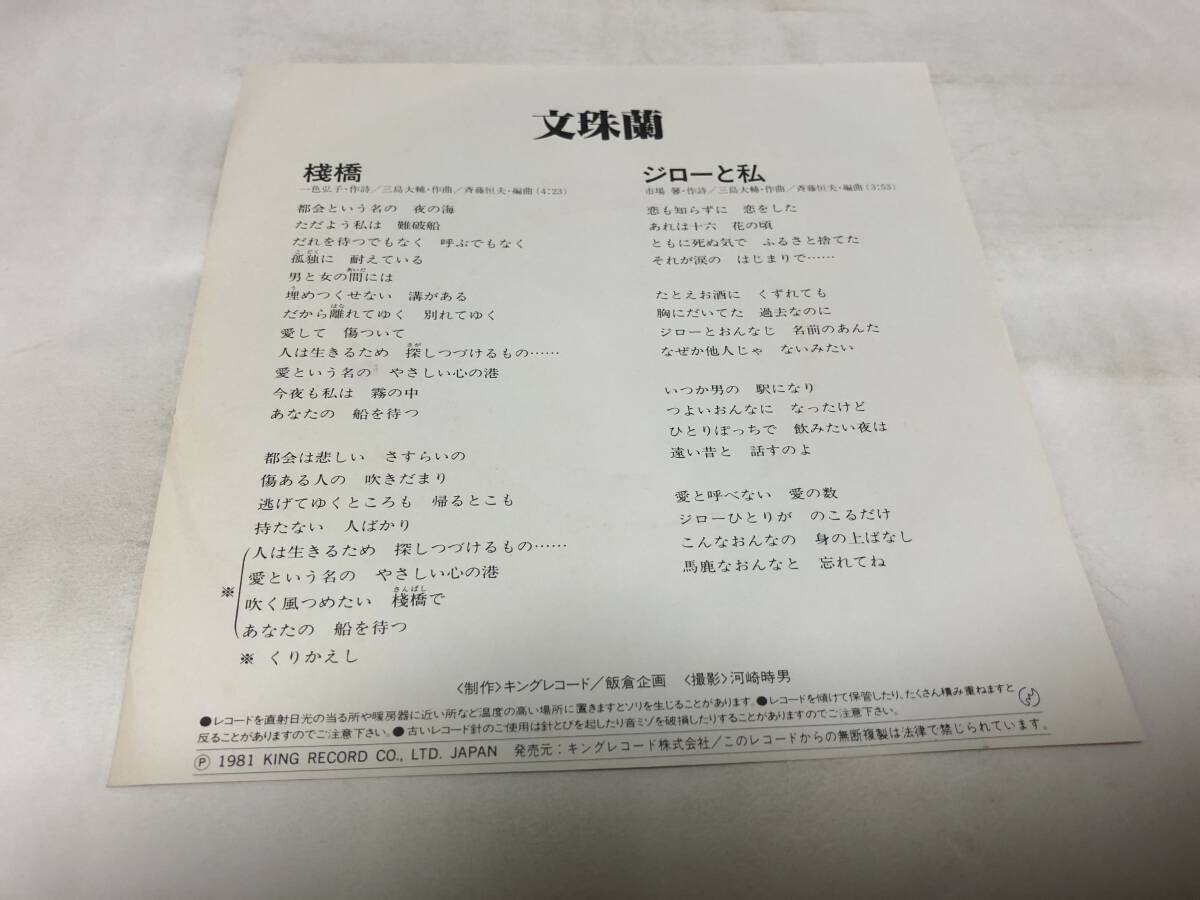 文珠蘭
棧橋
一色弘子・作詩／三島大輔・作曲／斉藤恒夫・編曲(4:23)
都会という名の　夜の海
ただよう私は　難破船
だれを待つでもなく　呼ぶでもなく
孤独に　耐えている
男と女の間には
埋めつくせない　溝がある
だから離れてゆく　別れてゆく
愛して　傷ついて
人は生きるため　探しつづけるもの……
愛という名の　やさしい心の港
今夜も私は　霧の中
あなたの　船を待つ
都会は悲しい　さすらいの
傷ある人の　吹きだまり
逃げてゆくところも　帰るとこも
持たない　人ばかり
※
人は生きるため　探しつづけるもの……
愛という名の　やさしい心の港
吹く風つめたい　棧橋で
あなたの　船を待つ
※ くりかえし
ジローと私
市場　馨・作詩／三島大輔・作曲／斉藤恒夫・編曲(3:53)
恋も知らずに　恋をした
あれは十六　花の頃
ともに死ぬ気で　ふるさと捨てた
それが涙の　はじまりで……
たとえお酒に　くずれても
胸にだいてた　過去なのに
ジローとおんなじ　名前のあんた
なぜか他人じゃ　ないみたい
いつか男の　駅になり
つよいおんなに　なったけど
ひとりぽっちで　飲みたい夜は
遠い昔と　話すのよ
愛と呼べない　愛の数
ジローひとりが　のこるだけ
こんなおんなの　身の上ばなし
馬鹿なおんなと　忘れてね
〈制作〉キングレコード／飯倉企画　〈撮影〉河崎時男
●レコードを直射日光の当る所や暖房器に近い所など温度の高い場所に置きますとソリを生じることがあります。●レコードを傾けて保管したり、たくさん積み重ねますと
反ることがありますのでご注意下さい。●古いレコード針のご使用は針とびを起したり音ミゾを破損したりすることがありますのでご注意下さい。
Ⓟ 1981 KING RECORD CO., LTD. JAPAN　発売元：キングレコード株式会社／このレコードからの無断複製は法律で禁じられています。